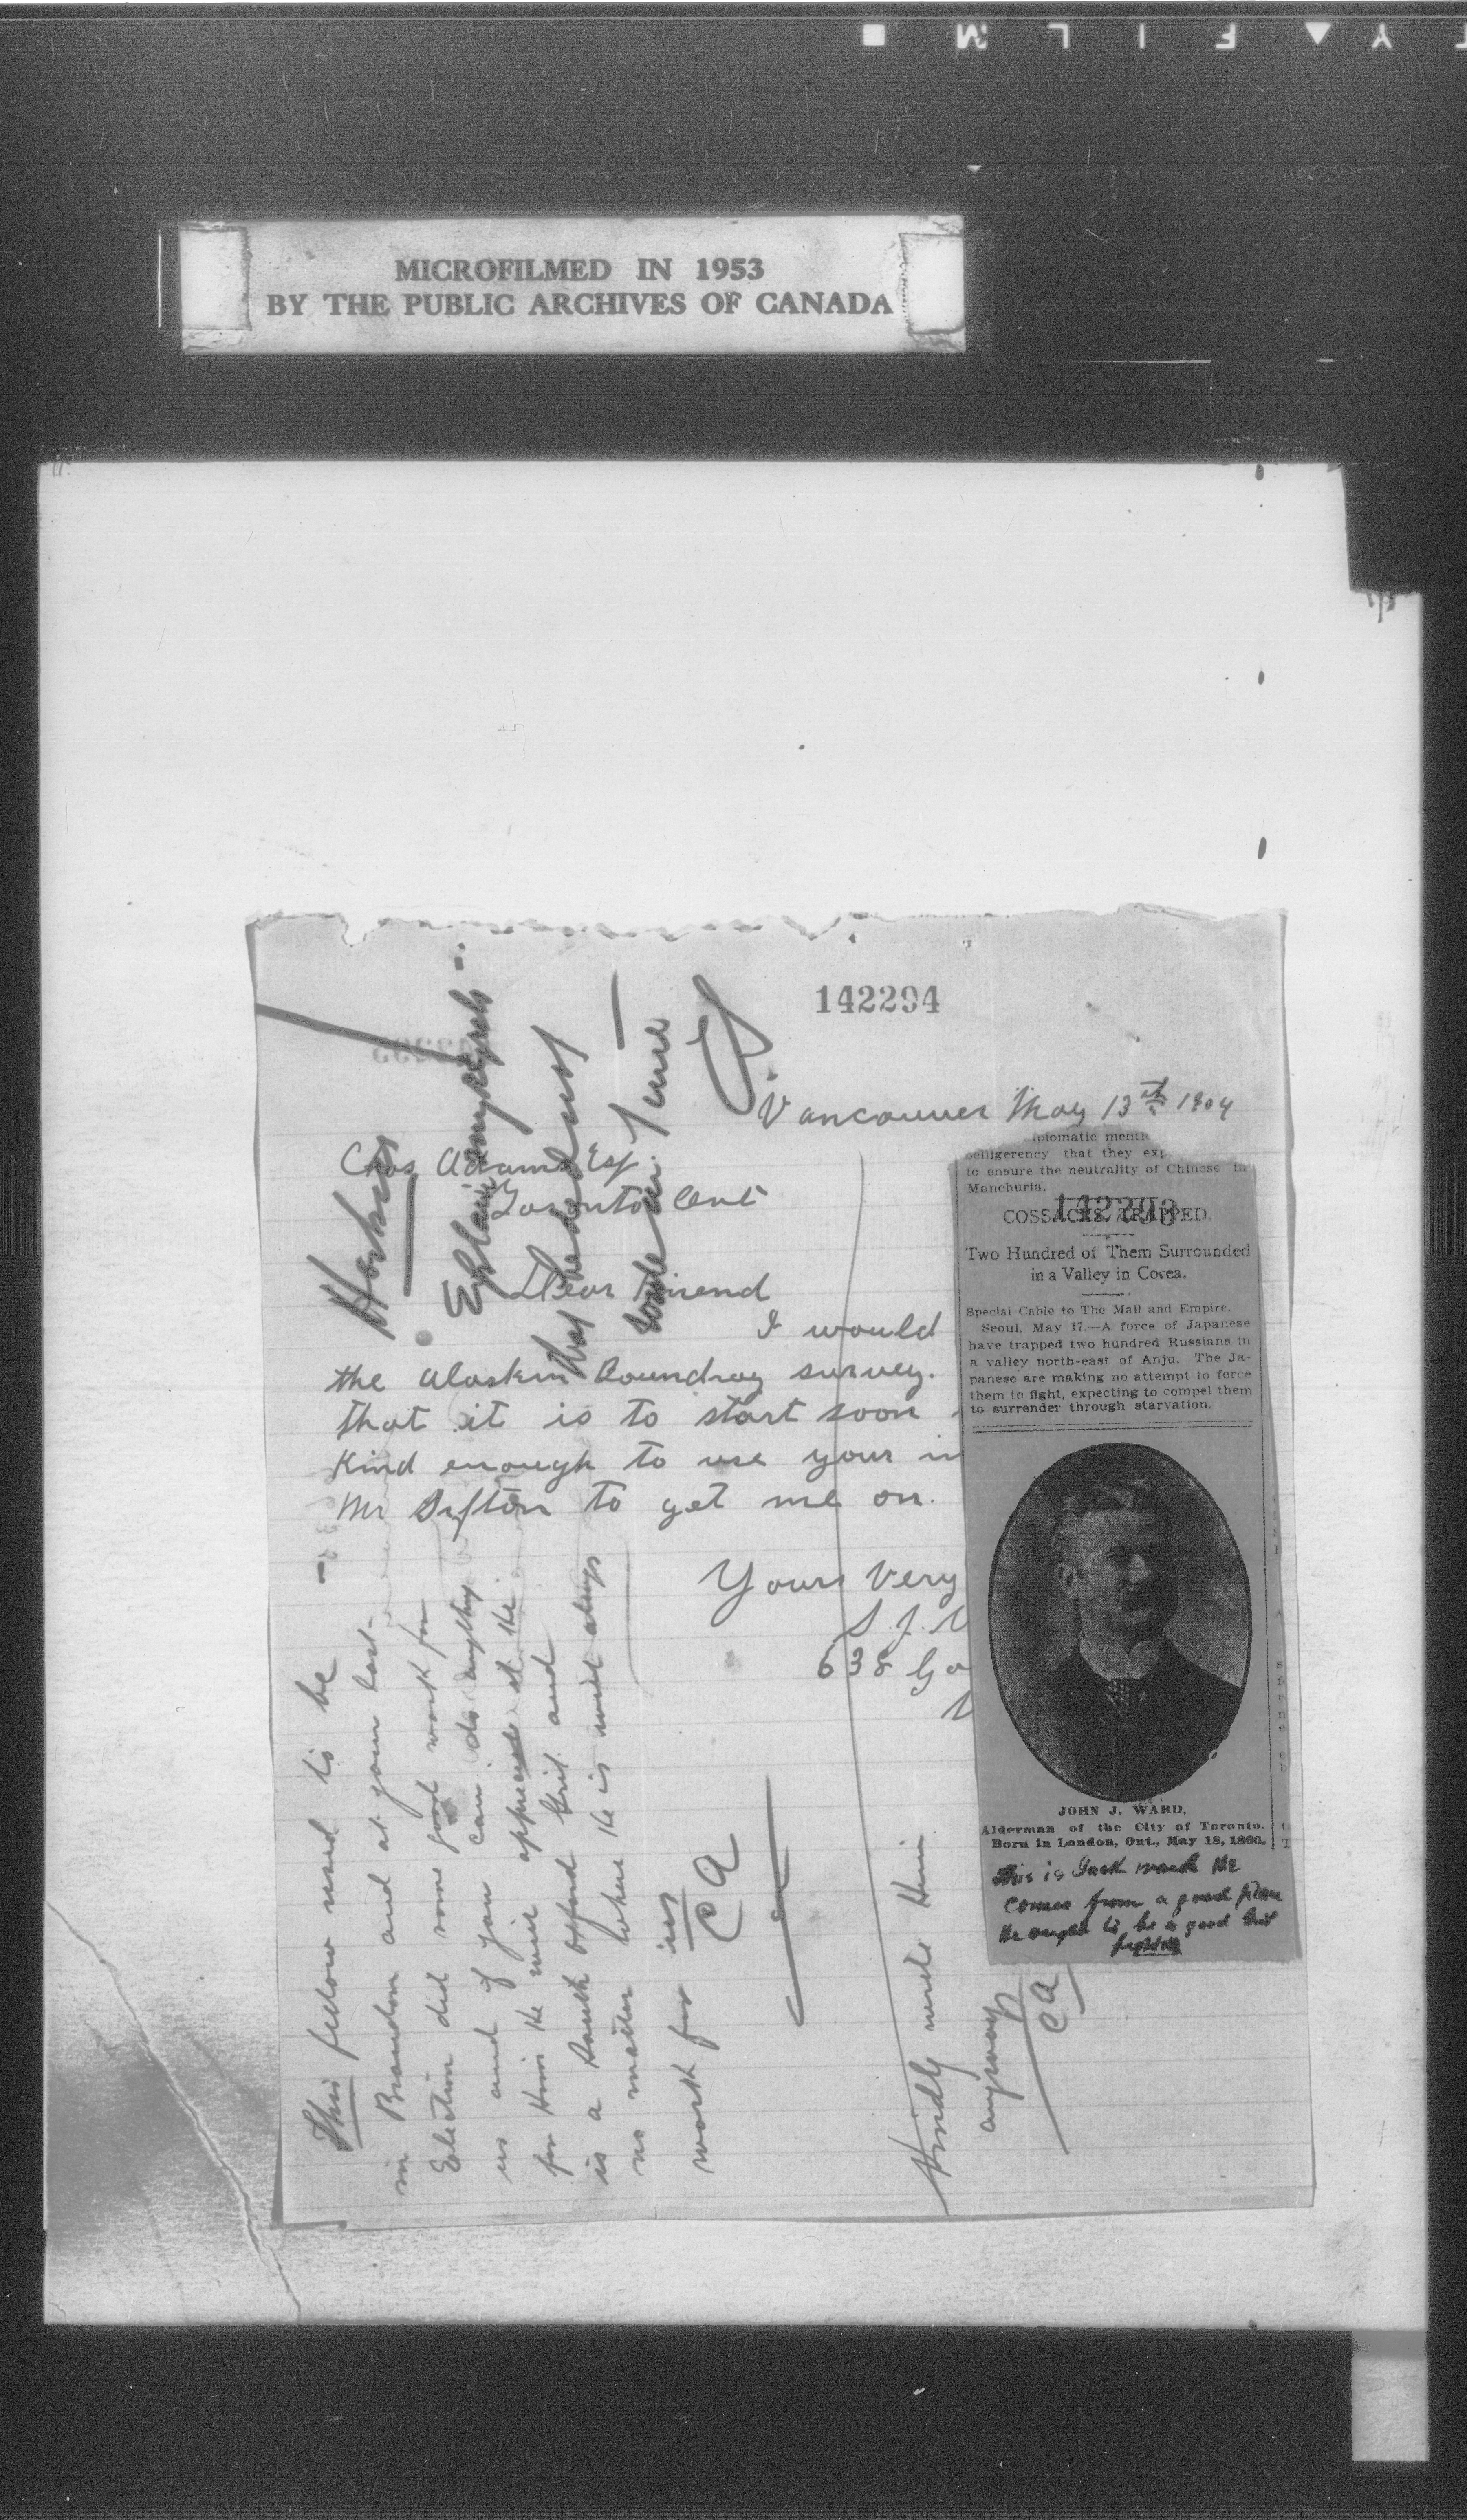 MICROFILMED IN 1953
BY THE PUBLIC ARCHIVES OF CANADA
142294
Vancouver May 13th 1904
Chas Adams Esq.
Toronto Ont
Dear Friend
I would
the Alaskan Boundray survey.
that it is to start soon
Kind enough to use your in
Mr Sifton to get me on.
Yours Very
S. J.
638 Go
This fellow used to be
in Brandon and at your last
Election did some good work for
us and if you can do anything
for Him He will appreciate it He
is a staunch Grit and
no matter where He is will always
work for us
CA
Kindly write Him
anyway
CA
iplomatic menti
belligerency that they exp
to ensure the neutrality of Chinese in
Manchuria.
142293
COSSACKS TRAPPED.
Two Hundred of Them Surrounded
in a Valley in Corea.
Special Cable to The Mail and Empire.
Seoul, May 17.—A force of Japanese
have trapped two hundred Russians in
a valley north-east of Anju. The Ja-
panese are making no attempt to force
them to fight, expecting to compel them
to surrender through starvation.
JOHN J. WARD,
Alderman of the City of Toronto.
Born in London, Ont., May 18, 1860.
this is Jack Ward He
comes from a good place
He ought to be a good Grit